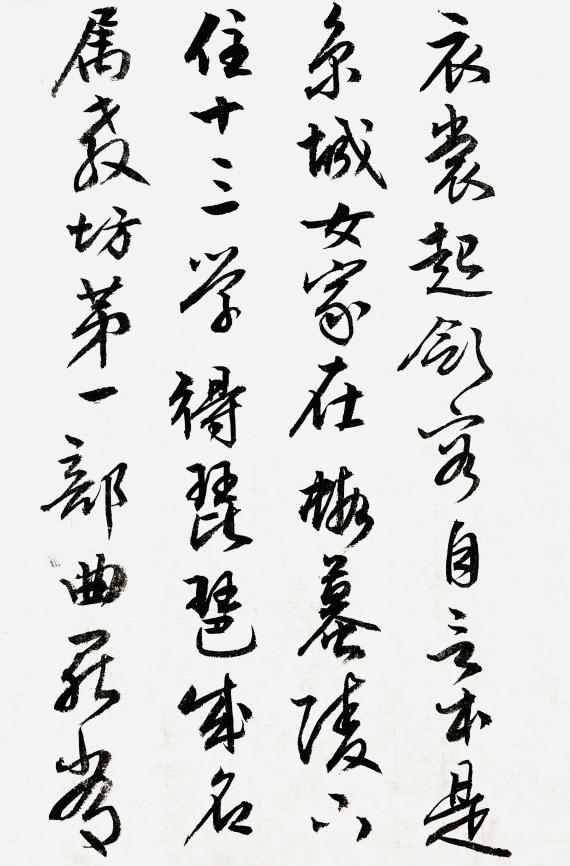 衣裳起敛容自言本是
京城女家在蝦蟇陵下
住十三学得琵琶成名
属教坊第一部曲罢常